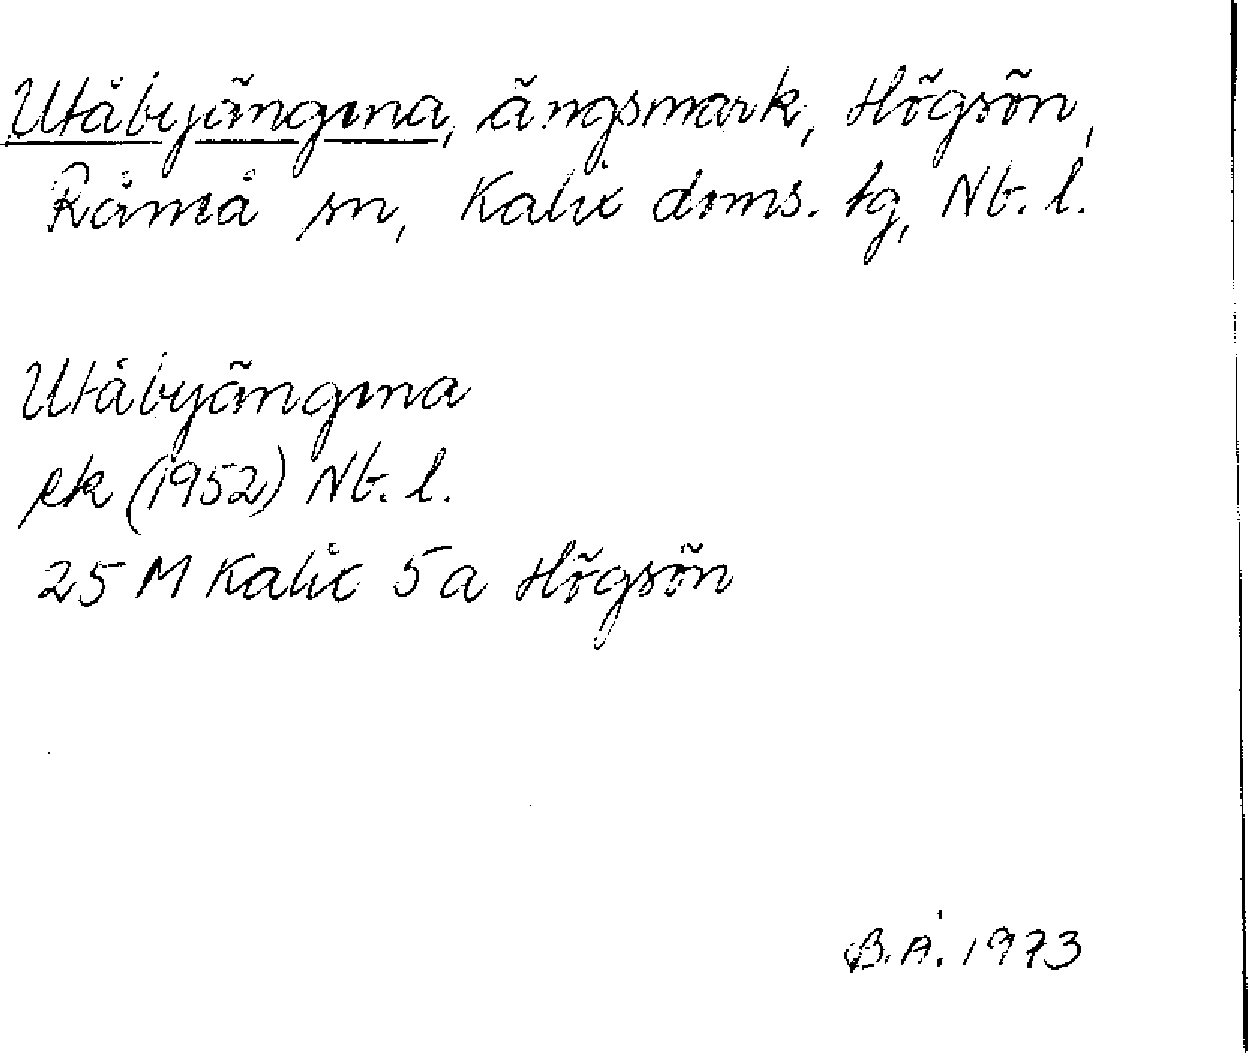 Utåbyängena, ängsmark, Högsön,
Råneå sn, Kalix doms. tg, Nb. l.
Utåbyängena
ek (1952) Nb. l.
25 M Kalix 5 a Högsön
B.Å. 1973